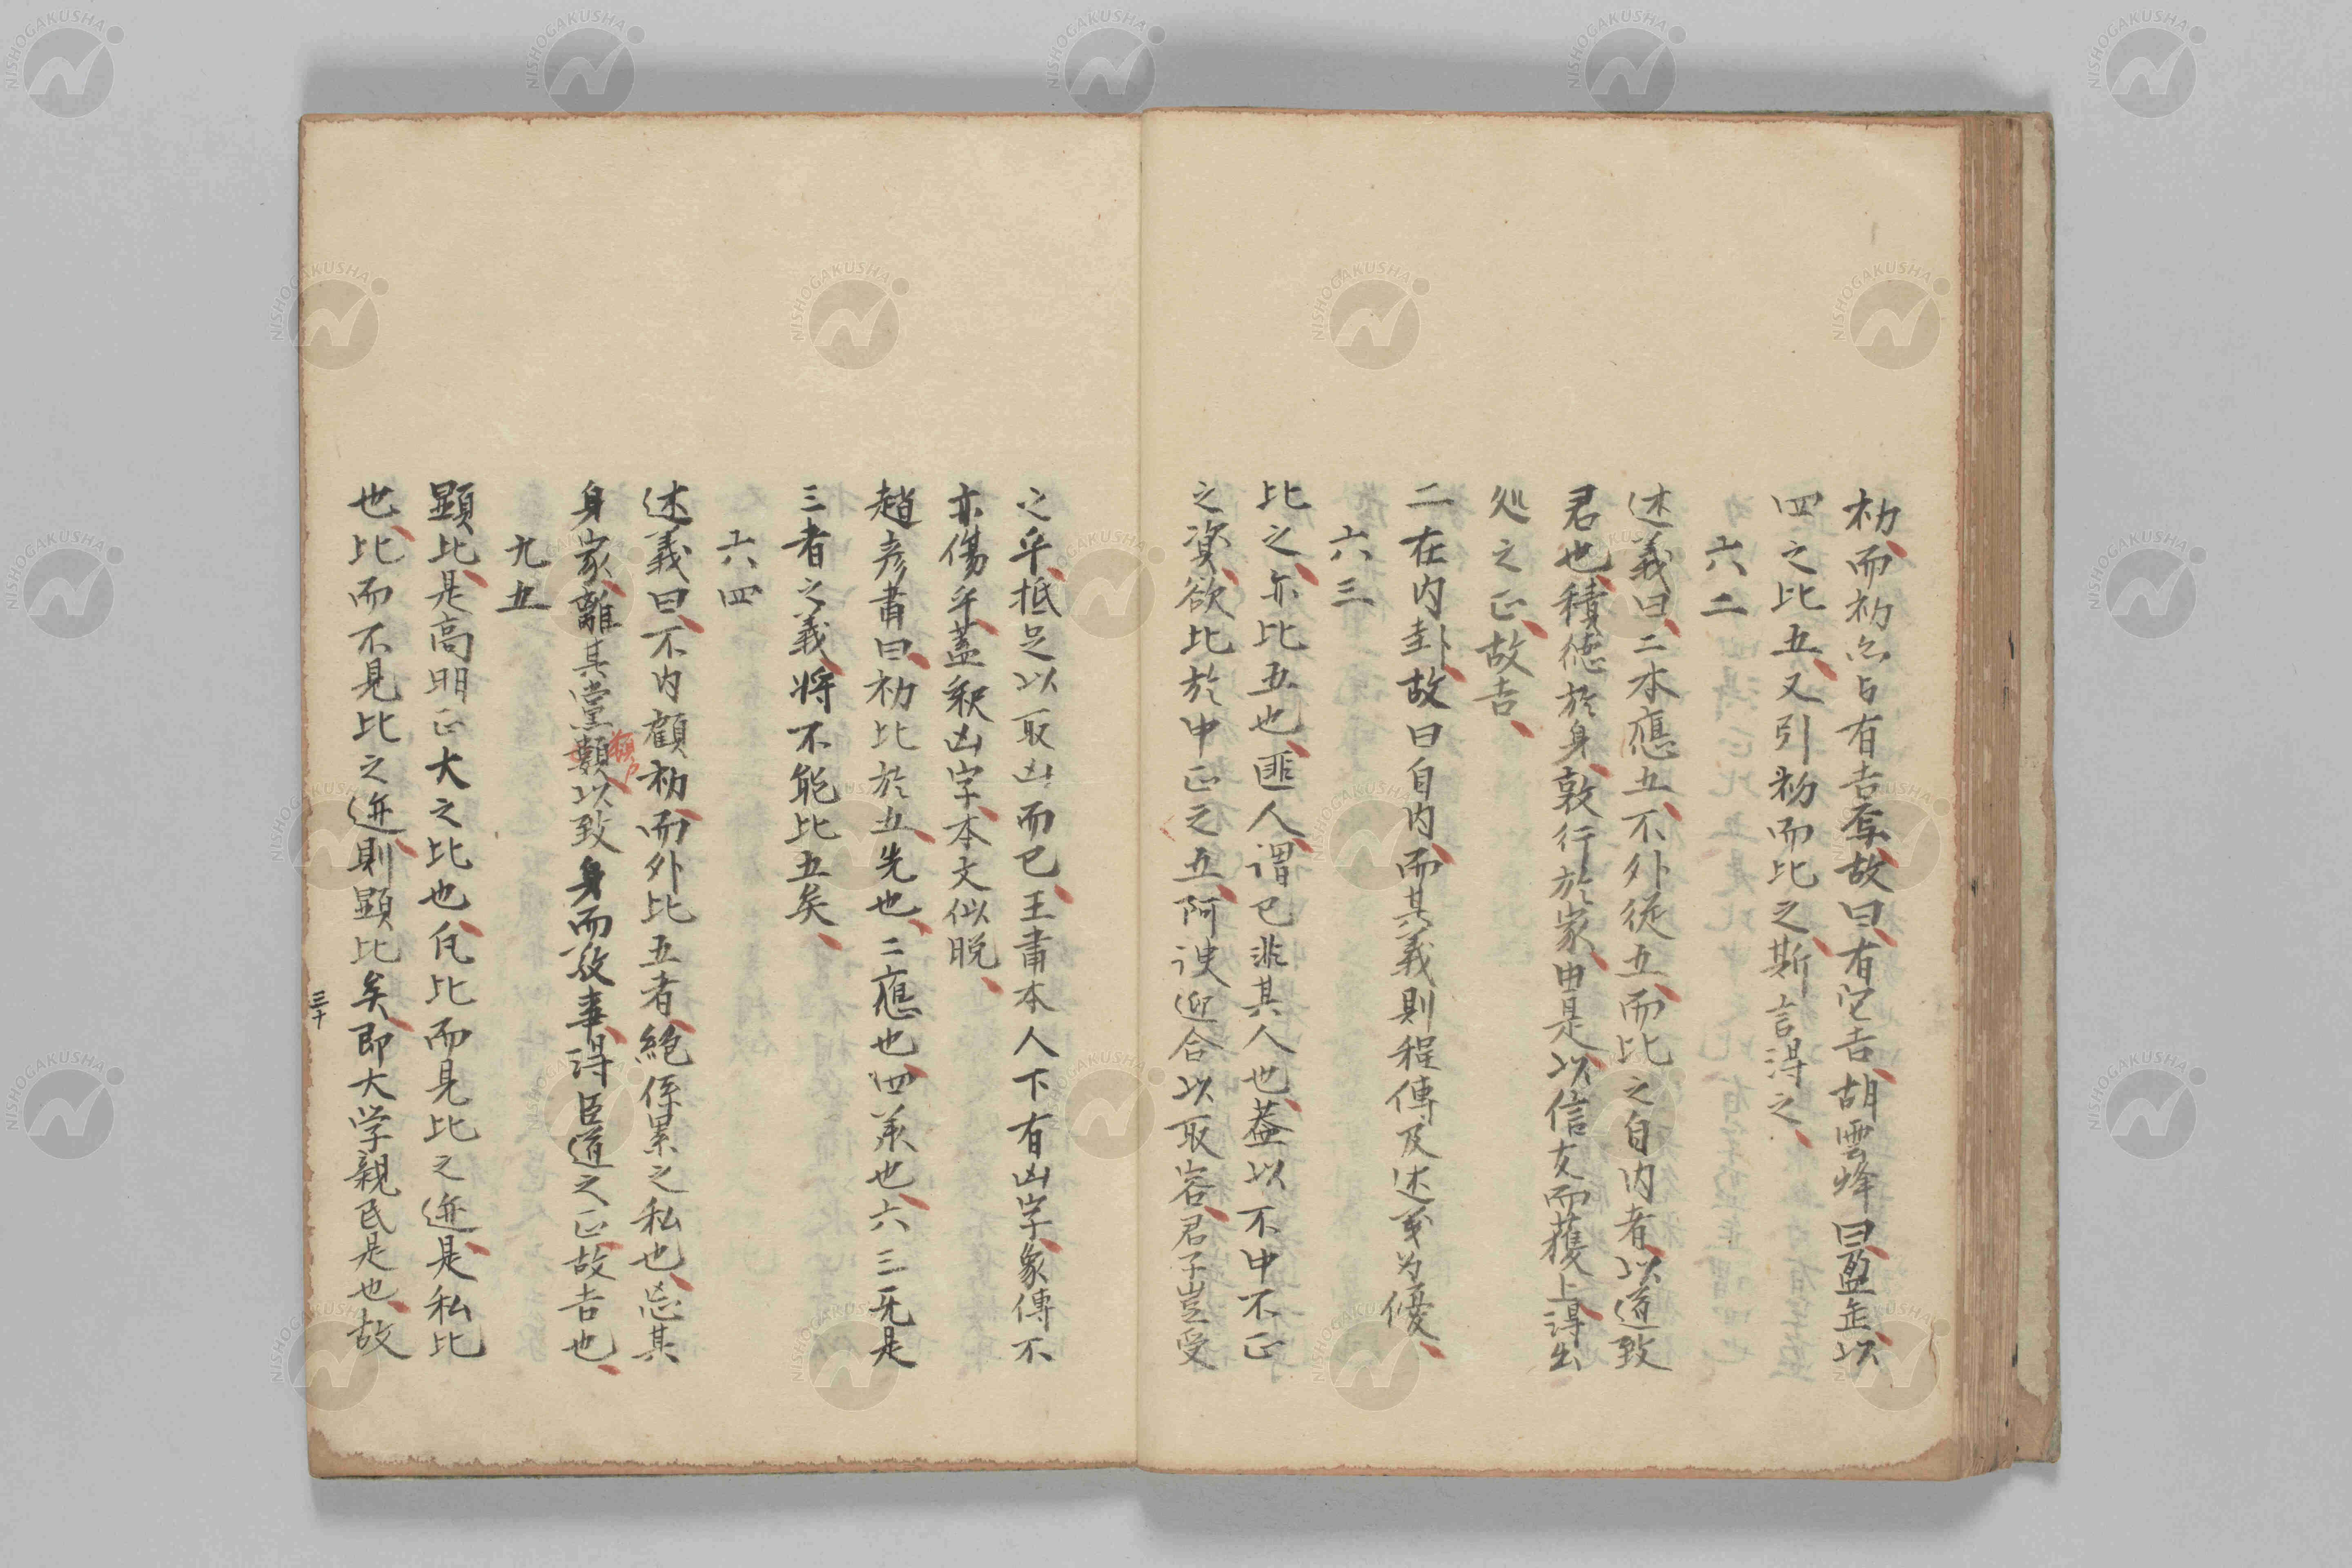 初而初亦与有吉焉故曰有它吉胡雲峰曰盈缶以
四之比五又引初而比之斯言得之
六二
述義曰二本應五不外従五而比之自内者以道致
君也積徳於身敦行於家由是以信友而獲上得出
処之正故吉
二在内卦故曰自内而其義則程傳及述義为優
六三
比之亦比五也匪人謂已非其人也蓋以不中不正
之資欲比於中正之五阿諛迎合以取容君子豈受
之乎抵足以取凶而已王肅本人下有凶字象傳不
亦傷乎蓋釈凶字本文似脱
趙彦肅曰初比於五先也二應也四承也六三无是
三者之義将不能比五矣
六四
述義曰不内顧初而外比五者絶係累之私也忘其
身家離其黨類以致身而效事得臣道之正故吉也
九五
顕比是高明正大之比也凡比而見比之迹是私比
也比而不見比之迹則顕比矣即大学親民是也故
三十
NISHOGAKUSHA